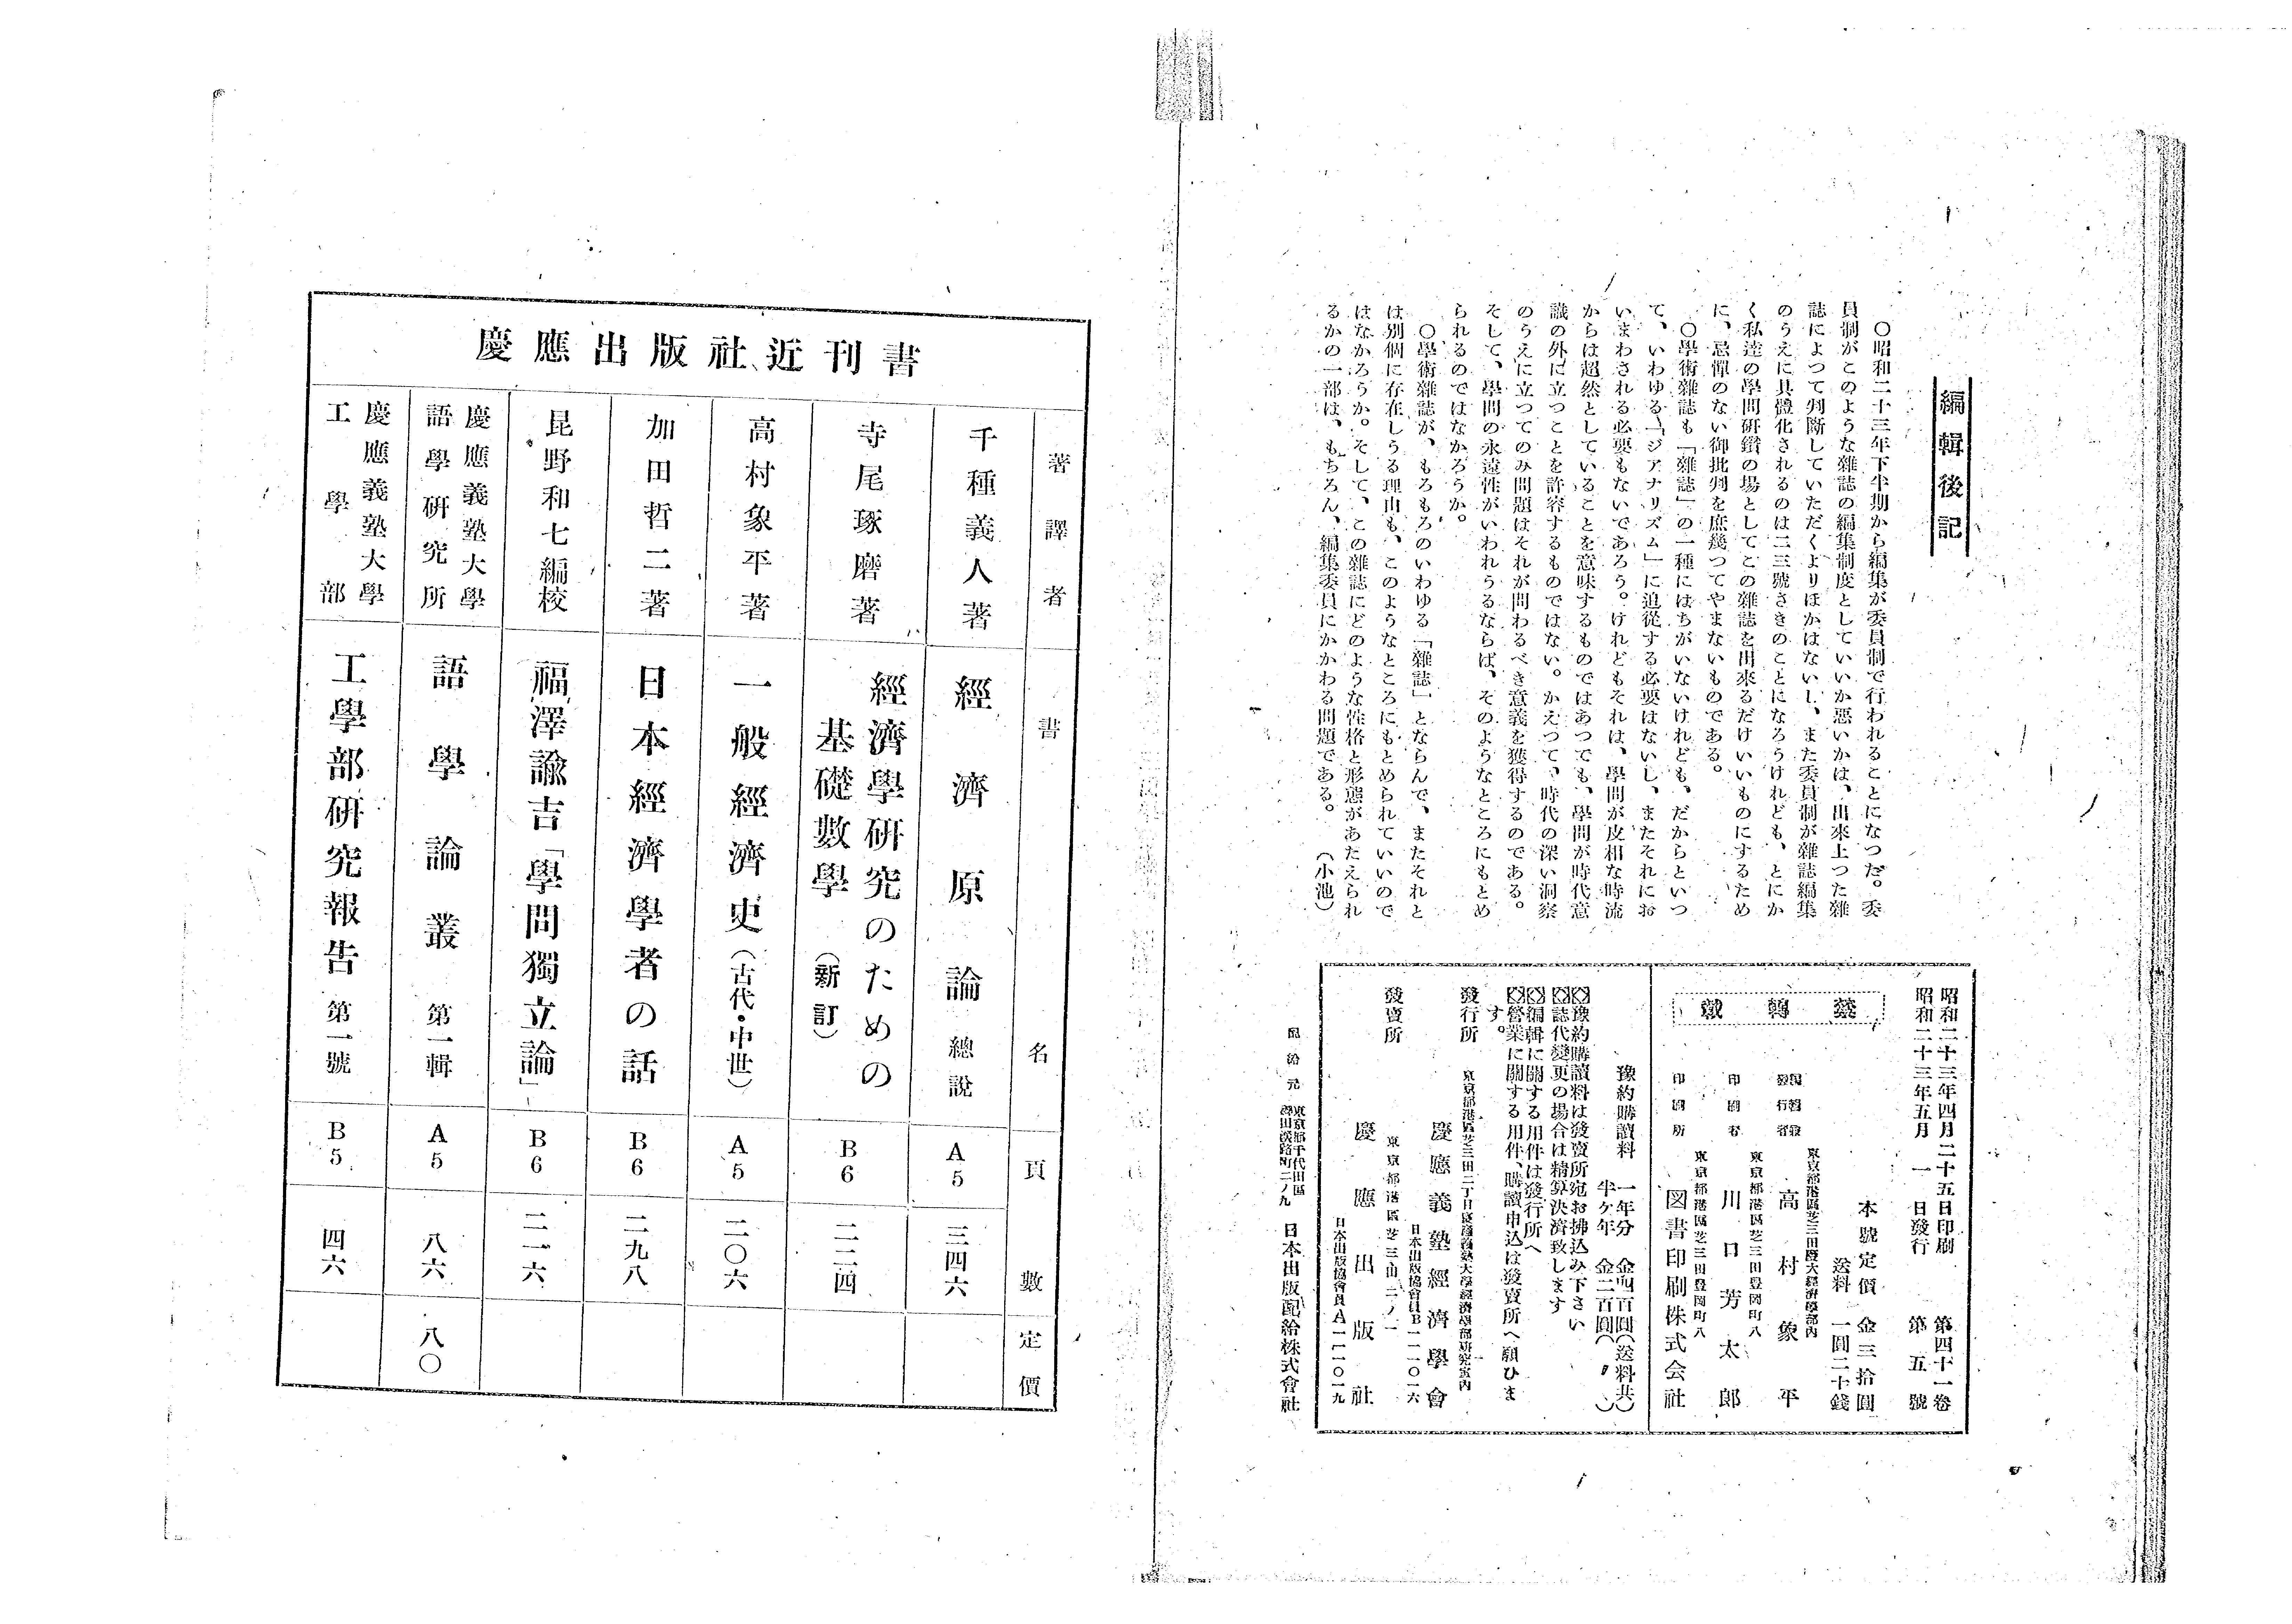 編輯後記
〇昭和二十三年下半期から編集が委員制で行われることになつた。委
員制がこのような雜誌の編集制度としていいか悪いかは、出來上つた雜
誌によつて判斷していただくよりほかはないし、また委員制が雜誌編集
のうえに具體化されるのは二三號さきのことになろうけれども、とにか
く私達の學問研鑽の場としてこの雜誌を出來るだけいいものにするため
に、忌憚のない御批判を庶幾つてやまないものである。
〇學術雜誌も「雜誌」の一種にはちがいないけれども、だからといつ
て、いわゆる「ジアナリズム」に追從する必要はないし、またそれにお
いまわされる必要もないであろう。けれどもそれは、學問が皮相な時流
からは超然としていることを意味するものではあつても、學問が時代意
識の外に立つことを許容するものではない。かえつて、時代の深い洞察
のうえに立つてのみ問題はそれが問わるべき意義を獲得するのである。
そして、學問の永遠性がいわれうるならば、そのようなところにもとめ
られるのではなかろうか。
〇學術雜誌が、もろもろのいわゆる「雜誌」とならんで、またそれと
は別個に存在しうる理由も、このようなところにもとめられていいので
はなかろうか。そして、この雜誌にどのような性格と形態があたえられ
るかの一部は、もちろん、編集委員にかかわる問題である。　（小池）
昭和二十三年四月二十五日印刷　第四十一卷
昭和二十三年五月　一　日發行　第　五　號
禁　轉　載
本號定價　金三拾圓
送料　一圓二十錢
東京都港區芝三田慶大經濟學部內
編輯兼
發行者　高　村　象　平
東京都港區芝三田豊岡町八
印刷者　川　口　芳　太　郎
東京都港區芝三田豊岡町八
印刷所　図書印刷株式会社
豫約購讀料　一年分　金四百圓（送料共）
半ケ年　金二百圓（　〃　）
豫約購讀料は發賣所宛お拂込み下さい
誌代變更の場合は精算決濟致します
編輯に關する用件は發行所へ
營業に關する用件、購讀申込は發賣所へ願ひま
す。
東京都港區芝三田二丁目慶應義塾大學經濟學部研究室內
發行所　慶應義塾經濟學會
日本出版協會員B一一〇一六
東京都港區芝三田二ノ一
發賣所　慶　應　出　版　社
日本出版協會員A一一〇一九
配給元　東京都千代田區
神田淡路町二ノ九　日本出版配給株式會社
慶應出版社近刊書
著譯者　書名　頁數　定價
千種義人著　經濟原論　總說　A5　三四六
寺尾琢磨著　經濟學研究のための
基礎數學（新訂）　B6　二二四
高村象平著　一般經濟史（古代・中世）　A5　二〇六
加田哲二著　日本經濟學者の話　B6　二九八
昆野和七編校　福澤諭吉「學問獨立論」　B6　二一六
慶應義塾大學
語學研究所　語學論叢　第一輯　A5　八六　八〇
慶應義塾大學
工學部　工學部研究報告　第一號　B5　四六